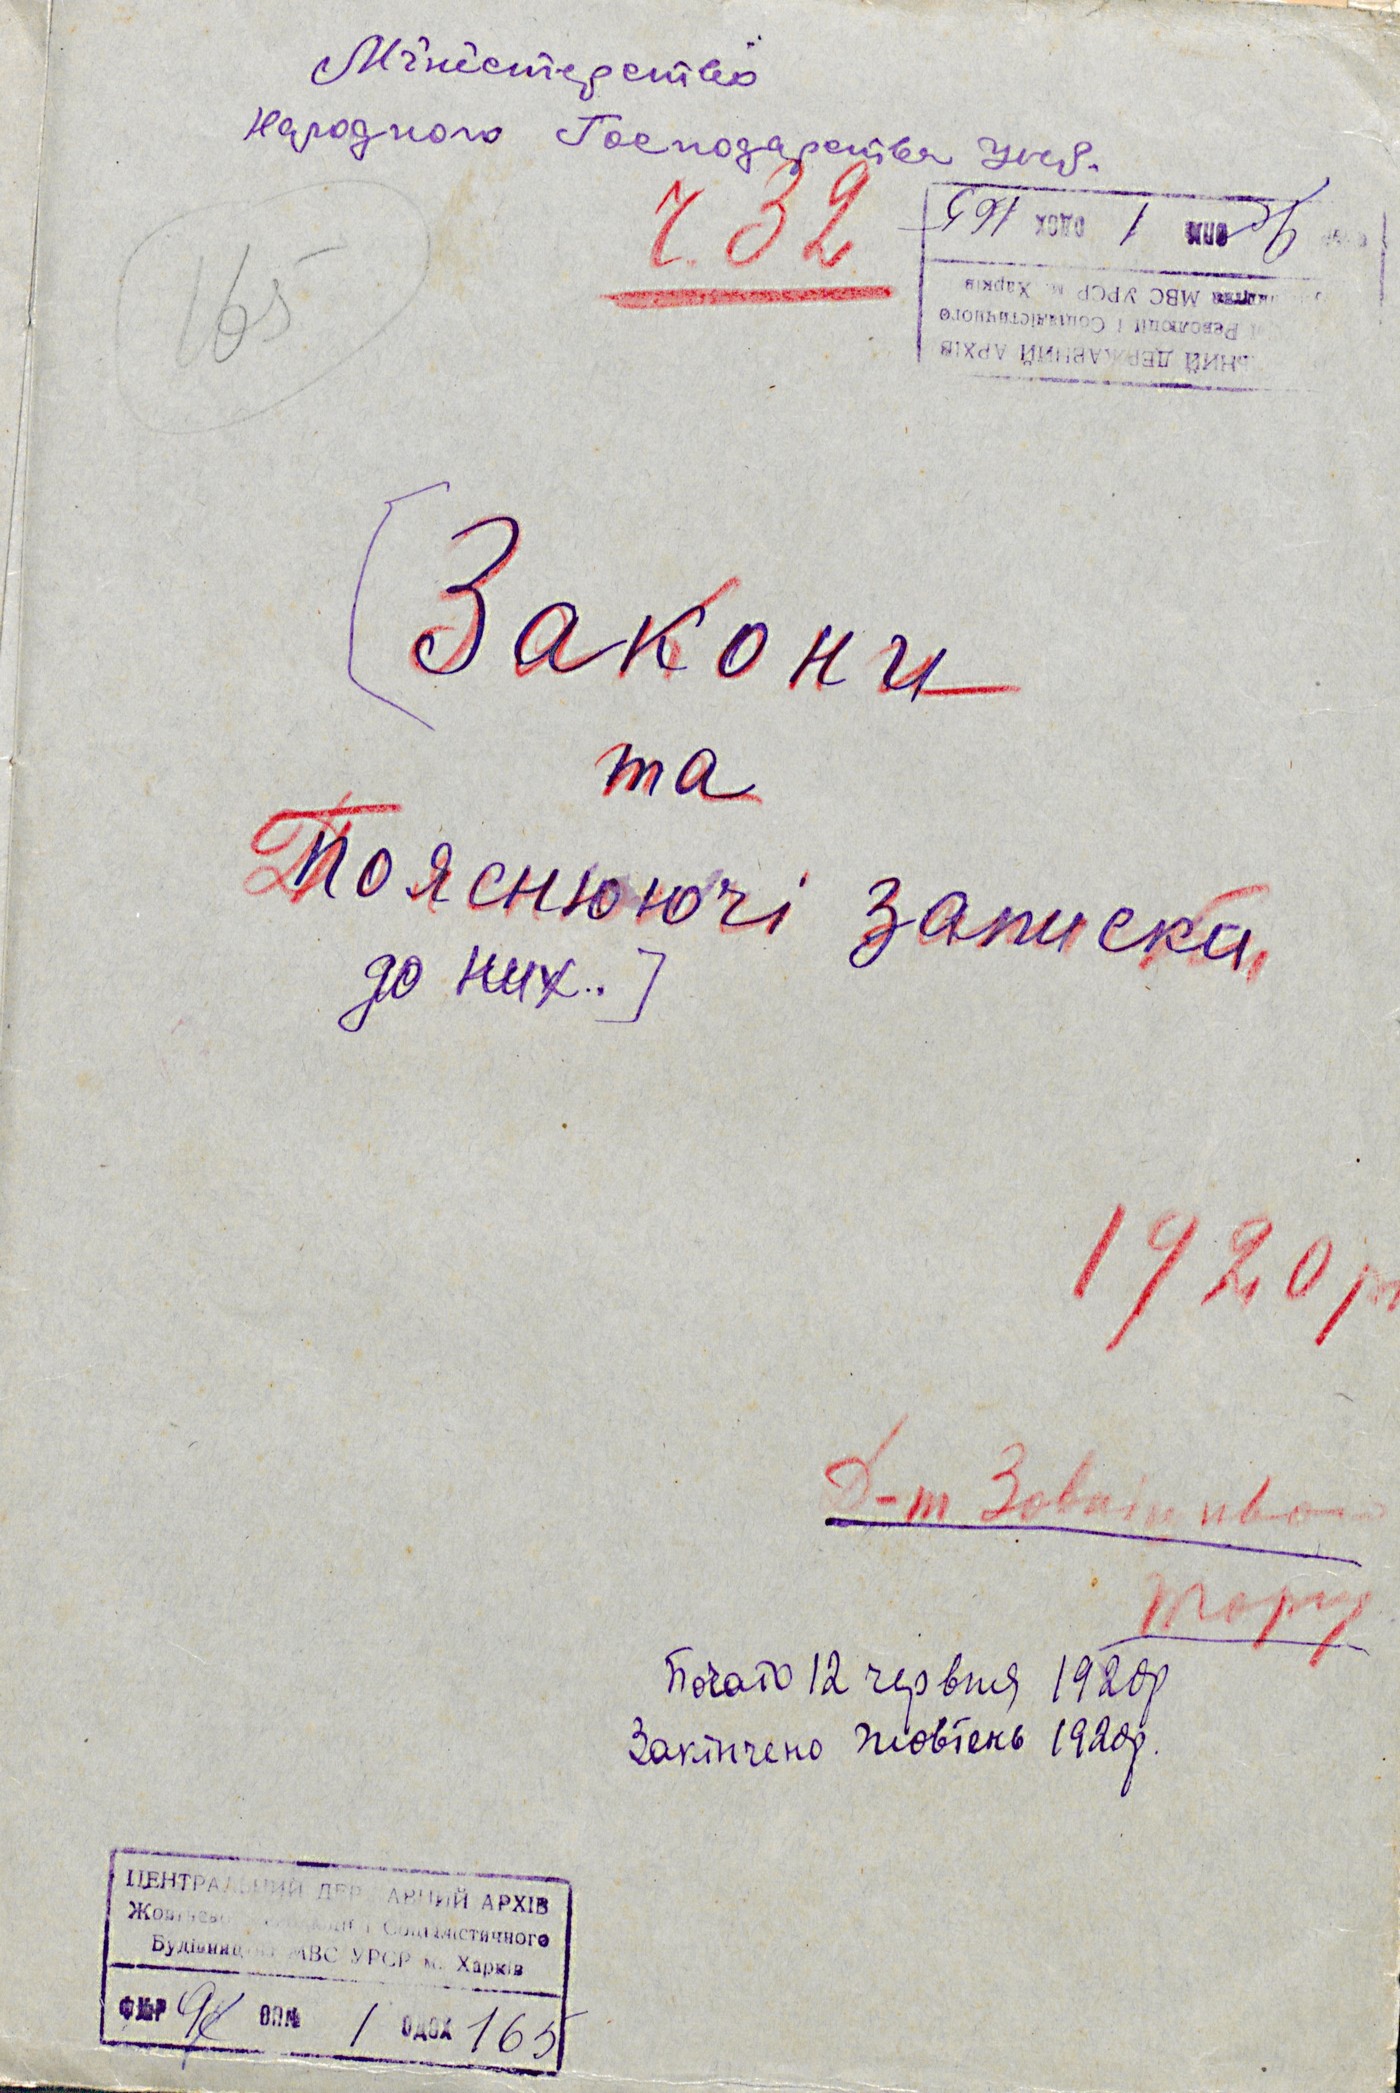 Міністерство
Народного Господарства
ч. 32
165
ОПИ 1 ОДОХ 165
МВС УРСР м. Харків
Революції і Соціалістичного
ЬНИЙ ДЕРЖАВНИЙ АРХІВ
[Закони
та
Пояснюючі записки
до них..]
1920 р
Д-т Зовнішньо
торг
Почато 12 червня 1920р
Закінчено жовтень 1920р.
ЦЕНТРАЛЬНИЙ ДЕРЖАВНИЙ АРХІВ
Жовтневої Революції і Соціалістичного
Будівництва МВС УРСР м. Харків
ОПИ 1 ОДОХ 165